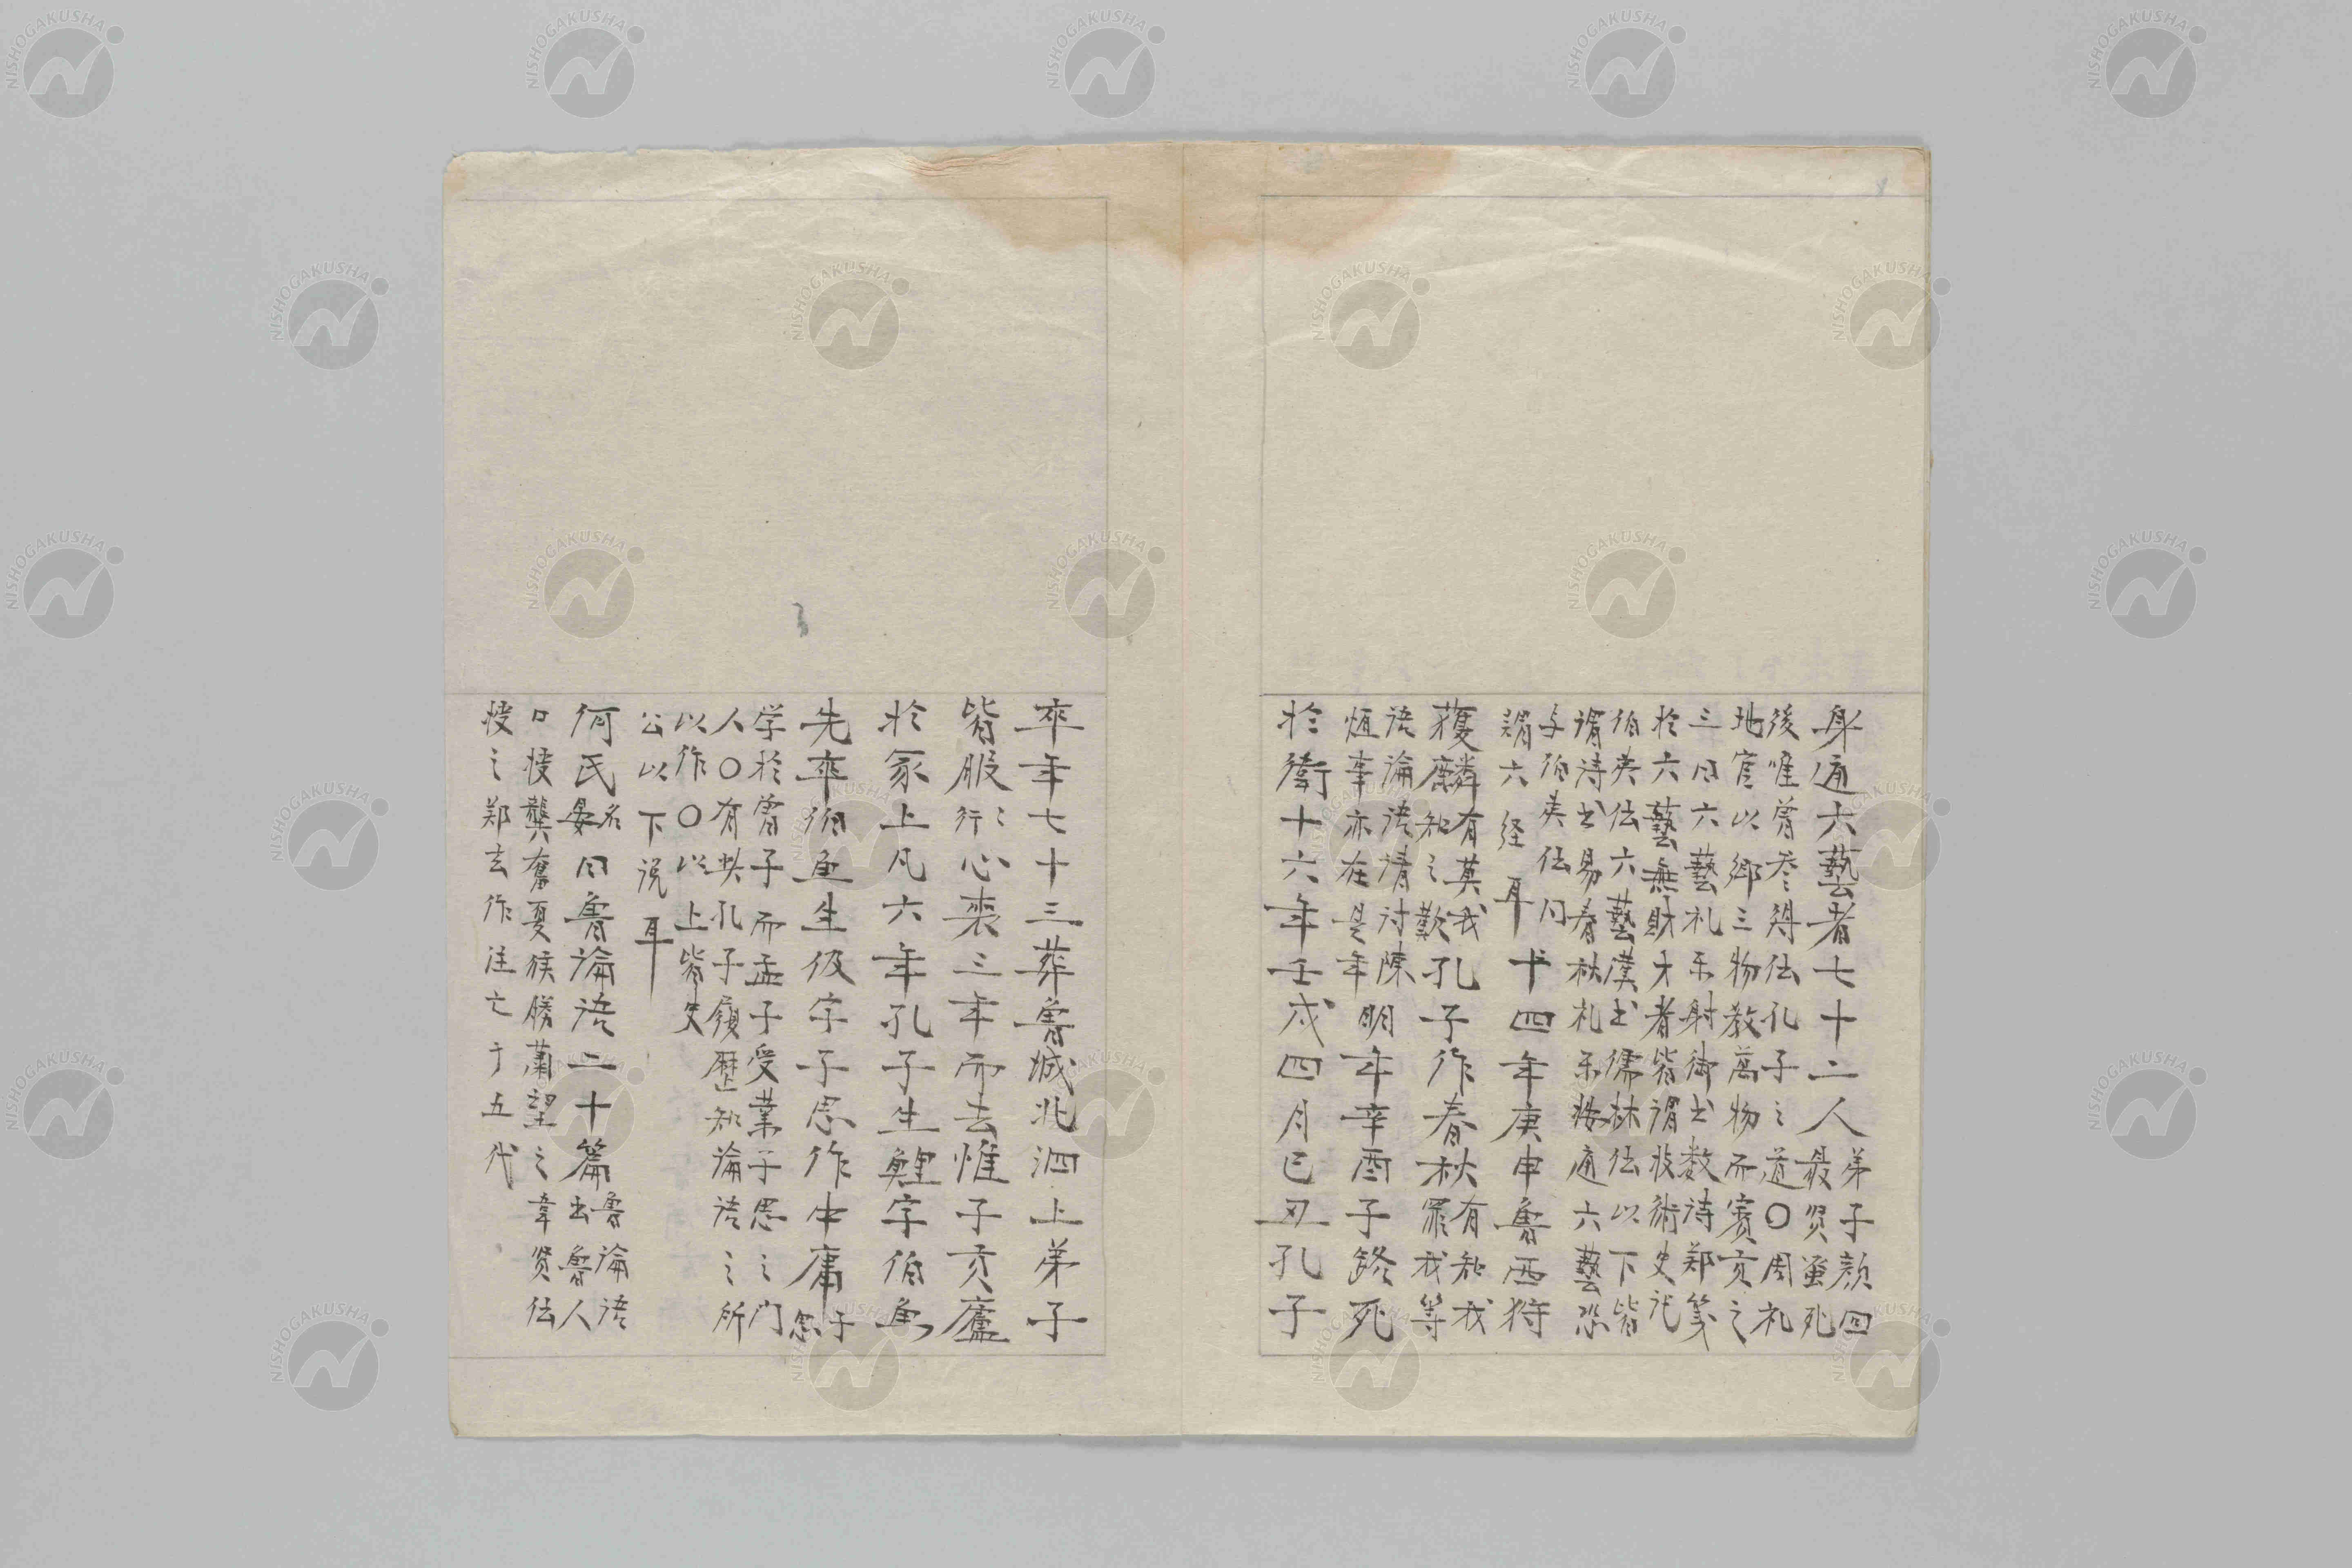 身通六藝者七十二人弟子顔回最贤蚤死
後惟曽参得伝孔子之道〇周礼
地官以郷三物教萬物而賓贡之
三曰六藝礼乐射御书数诗郑笺
於六藝無財才者皆謂技術史记
伯夷伝六藝漢书儒林伝以下皆
谓诗书易春秋礼乐故通六藝恐
与伯夷伝同
謂六経耳十四年庚申魯西狩
獲麟有莫我知之歎孔子作春秋有知我罪我等
语論语請討陳恒事亦在是年明年辛酉子路死
於衛十六年壬戌四月已丑孔子
卒年七十三葬魯城北泗上弟子
皆服〻行心喪三年而去惟子贡廬
於冢上凡六年孔子生鯉字伯魚
先卒伯魚生伋字子思作中庸子思
学於曽子而孟子受業子思之门
人〇有此孔子履歴知論语之所
以作〇以上皆史
公以下説耳
何氏名晏曰魯論语二十篇魯論语出魯人
口授龔奮夏侯勝蕭望之韋贤伝
授之郑玄作注亡于五代